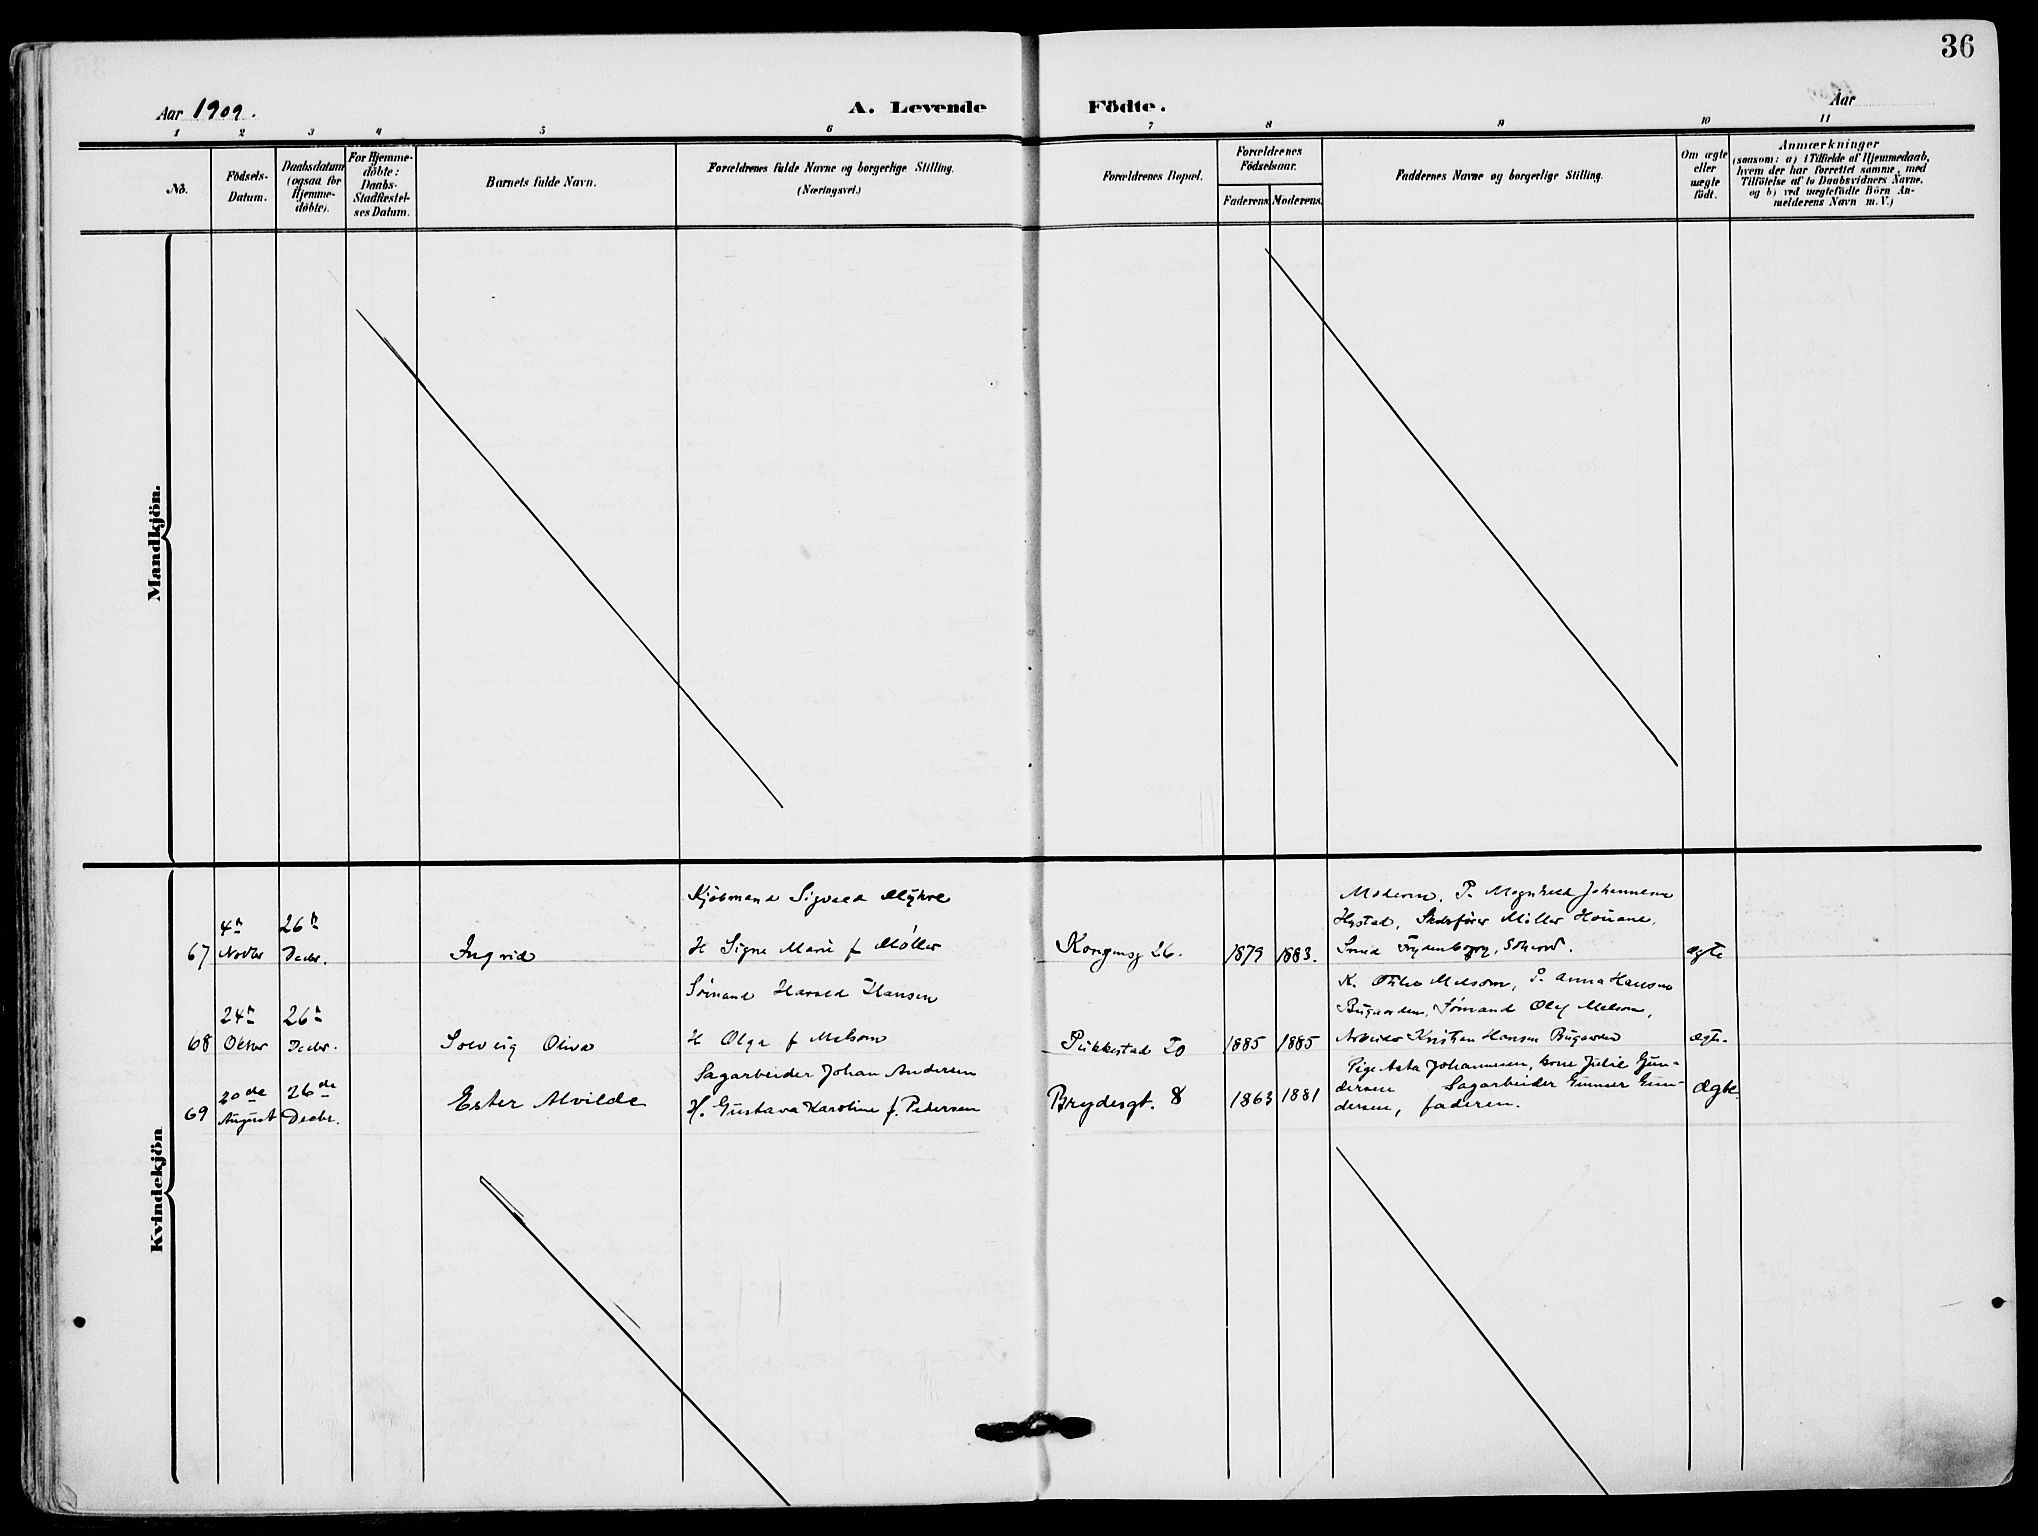 36
Aar 1909.
A. Levende Födte.
Aar
1 2 3 4 5 6 7 8 9 10 11
No.
Födsels-
Datum.
Daabsdatum
(ogsaa for
Hjemme-
döbte).
For Hjemme-
döbte:
Daabs-
Stadfæstel-
ses Datum.
Barnets fulde Navn.
Forældrenes fulde Navne og borgerlige Stilling.
(Næringsvei.)
Forældrenes Bopæl.
Forældrenes
Födselsaar.
Faderens. Moderens.
Faddernes Navne og borgerlige Stilling.
Om ægte
eller
uægte
födt.
Anmærkninger
(saasom: a) i Tilfælde af Hjemmedaab,
hvem der har forrettet samme, med
Tilföielse af to Daabsvidners Navne.
og b) ved uægtefödte Börn An-
melderens Navn m. V.)
Mandkjön.
Kvindekjön
67
4de
Novbr
26de
Decbr.
Ingrid
Kjøbmand Sigvald Myhre
H Signe Marie f Møller
Kongensg 26.
1879
1883.
Moderen, P. Magnhild Johannesen
Hystad, Skibsfører Møller
ægte
68
24de
Oktbr
26de
Decbr.
Solveig Oliva
Sømand Harald Hansen
H Olga f Melsom
Pukkestad
1885
1885
K. Melsom, P. Anna Hansen
Bugaarden, Sømand Olaf Melsom,
Arbeider Kristian Hansen Bugaarden
ægte
69
20de
August
26de
Decbr.
Ester Alvilde
Sagarbeider Johan Andersen
H. Gustava Karoline f. Pedersen
Brydesgt. 8
1863
1881
Pige Asta Johannesen, kone Julie Gun-
dersen Sagarbeider Gunner Gun-
dersen, faderen.
Ægte.